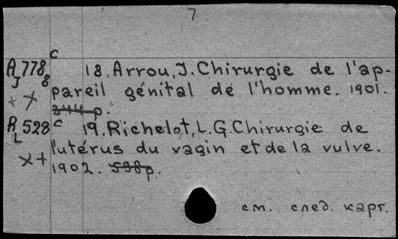 7
A 778 c 18. Arrou, J. Chirurgie de l'ap-
J 8 pareil génital de l'homme. 1901.
344 p.
R 528 c 19. Richelot, L.G. Chirurgie de
L l'utérus du vagin et de la vulve.
1902. 598p.
см. след. карт.